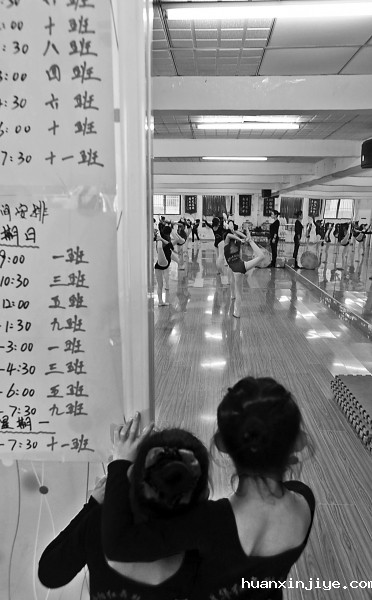 :00 十一班
:30 八班
3:00 四班
4:30 六班
6:00 十班
7:30 十一班
间安排
期日
9:00 一班
10:30 三班
12:00 五班
-1:30 九班
-3:00 一班
-4:30 三班
-6:00 五班
-7:30 九班
星期一
-7:30 十一班
huanxinjiye.com